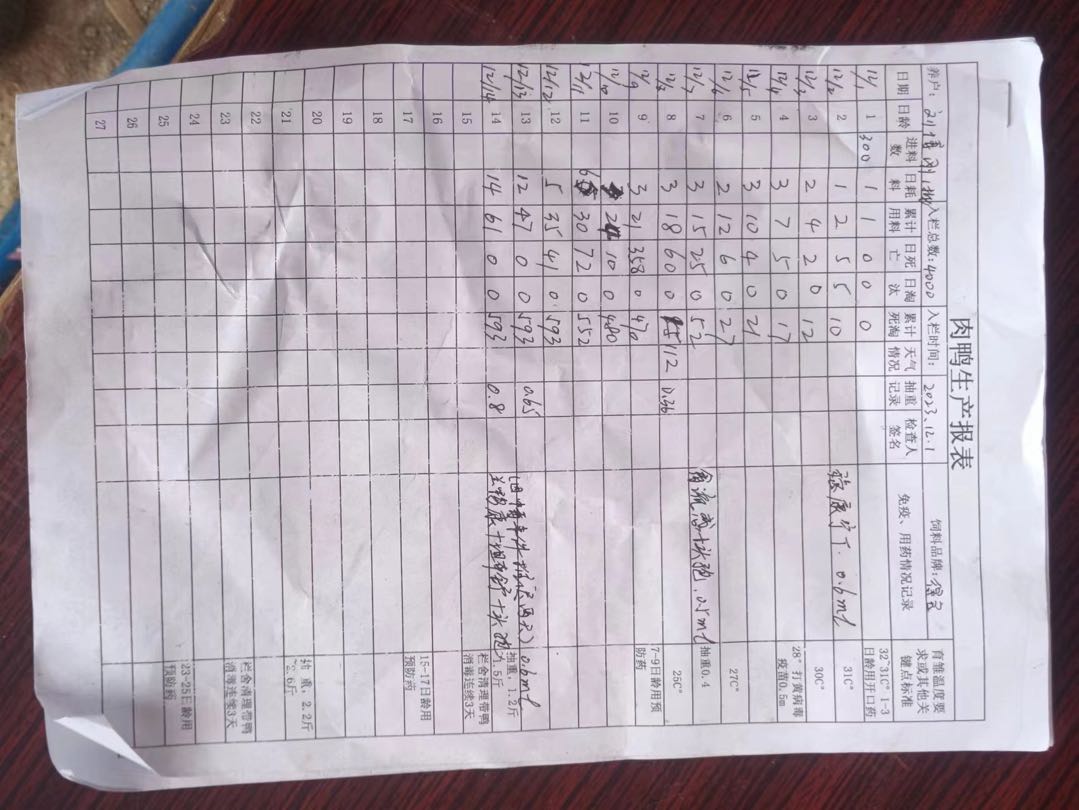 肉鸭生产报表
养户: 入栏总数:4000 入栏时间: 2023.12.1 饲料品牌:
日期 日龄 进料数 日耗料 累计用料 日死亡 日淘汰 累计死淘 天气情况 抽重记录 检查人签名 免疫、用药情况记录 育雏温度要求或其他关键点标准
12/1 1 300 1 1 0 0 0 32~31C° 1-3日龄用开口药
12/2 2 1 2 5 5 10 0.6ml 31C°
12/3 3 2 4 2 0 12 30C°
12/4 4 3 7 5 0 17 28°打黄病毒疫苗0.5m
12/5 5 3 10 4 0 21
12/6 6 2 12 6 0 27 27C°
12/7 7 3 15 25 0 52 0.5ml 抽重0.4
12/8 8 3 18 60 0 112 0.36 25C°
12/9 9 3 21 358 0 470 7-9日龄用预防药
12/10 10 24 10 0 480
12/11 11 6 30 72 0 552
12/12 12 5 35 41 0 593
12/13 13 12 47 0 0 593 0.65 0.6ml
12/14 14 14 61 0 0 593 0.8 抽重,1.2斤为1.5斤
15 栏舍清理带鸭消毒连续3天
16
17 15-17日龄用预防药
18
19
20
21 抽重,2.2斤~2.6斤
22
23 栏舍清理带鸭消毒连续3天
24
25 23-25日龄用预防药
26
27